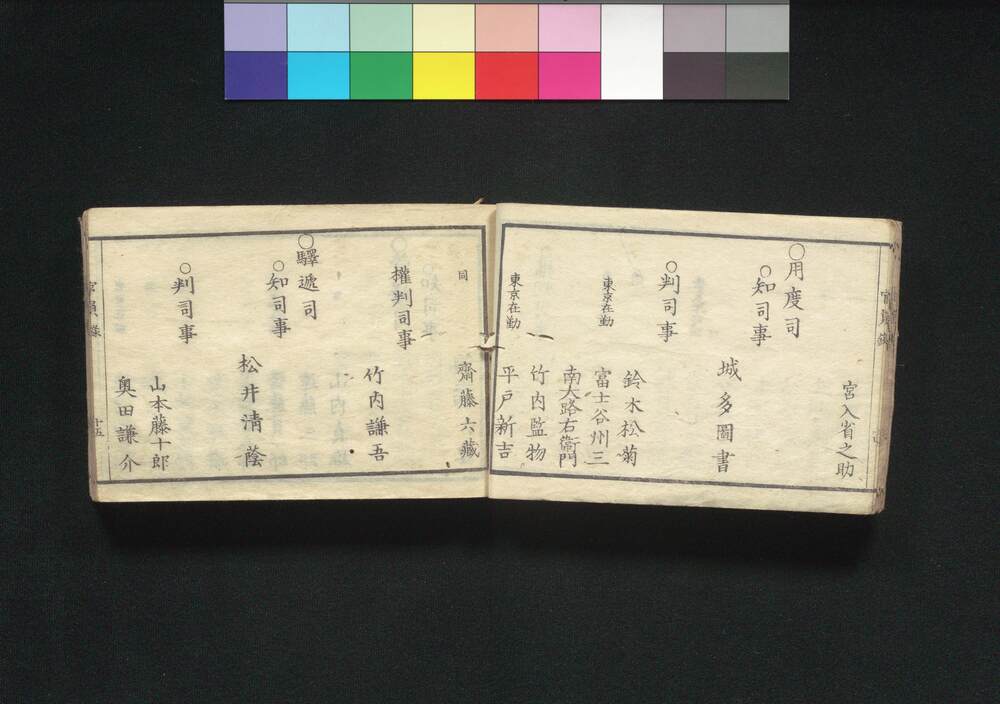 宮入省之助
○用度司
○知司事
城多圖書
○判司事
鈴木松菊
東京在勤
富士谷州三
南大路右衛門
竹内監物
東京在勤
平戸新吉
同
齋藤六藏
權判司事
竹内謙吾
○驛遞司
○知司事
松井清蔭
○判司事
山本藤十郎
奥田謙介
官員錄
十五